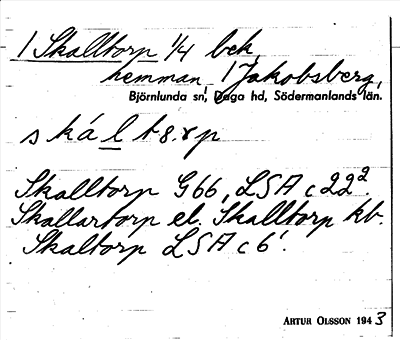 / Skalltorp 1/4 bek.
hemman / Jakobsberg,
Björnlunda sn, Daga hd, Södermanlands län.
s k á l t s. r p
Skalltorp G66, LSA c 22².
Skallartorp el. Skalltorp kb.
Skaltorp LSA c 6¹.
ARTUR OLSSON 1943